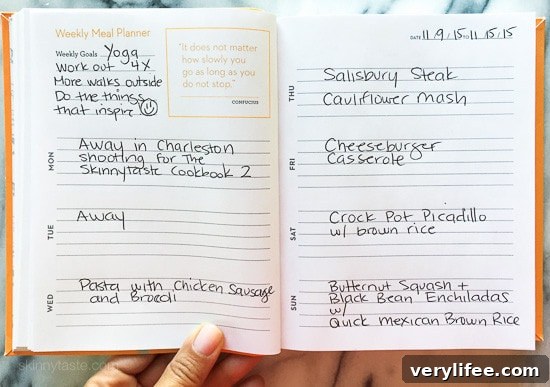 Weekly Meal Planner
Weekly Goals Yoga
work out 4x
More walks outside
Do the things
that inspire
"It does not matter
how slowly you
go as long as you
do not stop."
CONFUCIUS
MON
Away in Charleston
shooting for The
Skinnytaste Cookbook 2
TUE
Away
WED
Pasta with Chicken Sausage
and Brocoli
DATE 11/9/15 TO 11/15/15
THU
Salisbury Steak
Cauliflower mash
FRI
Cheeseburger
Casserole
SAT
Crock Pot Picadillo
w/ brown rice
SUN
Butternut Squash +
Black Bean Enchiladas
w/
Quick mexican Brown Rice
skinnytaste.com
verylifee.com